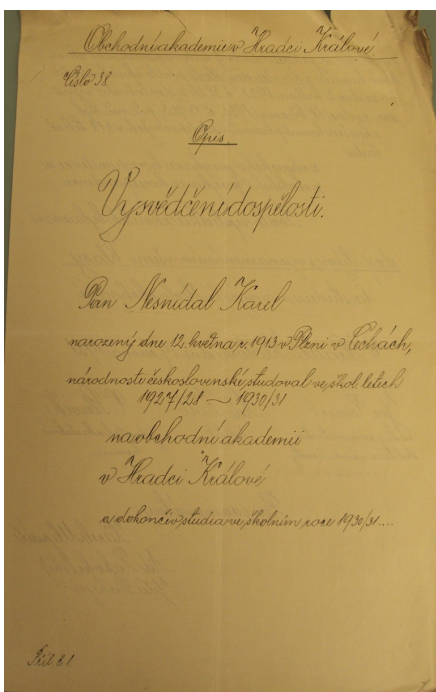 Obchodní akademie v Hradci Králové
Číslo 38
Opis.
Vysvědčení dospělosti.
Pan Nesnídal Karel
narozený dne 12. května r. 1913 v Plzni v Čechách,
národnosti československé studoval ve škol. letech
1927/28 — 1930/31
na obchodní akademii
v Hradci Králové
a dokončiv studia ve školním roce 1930/31....